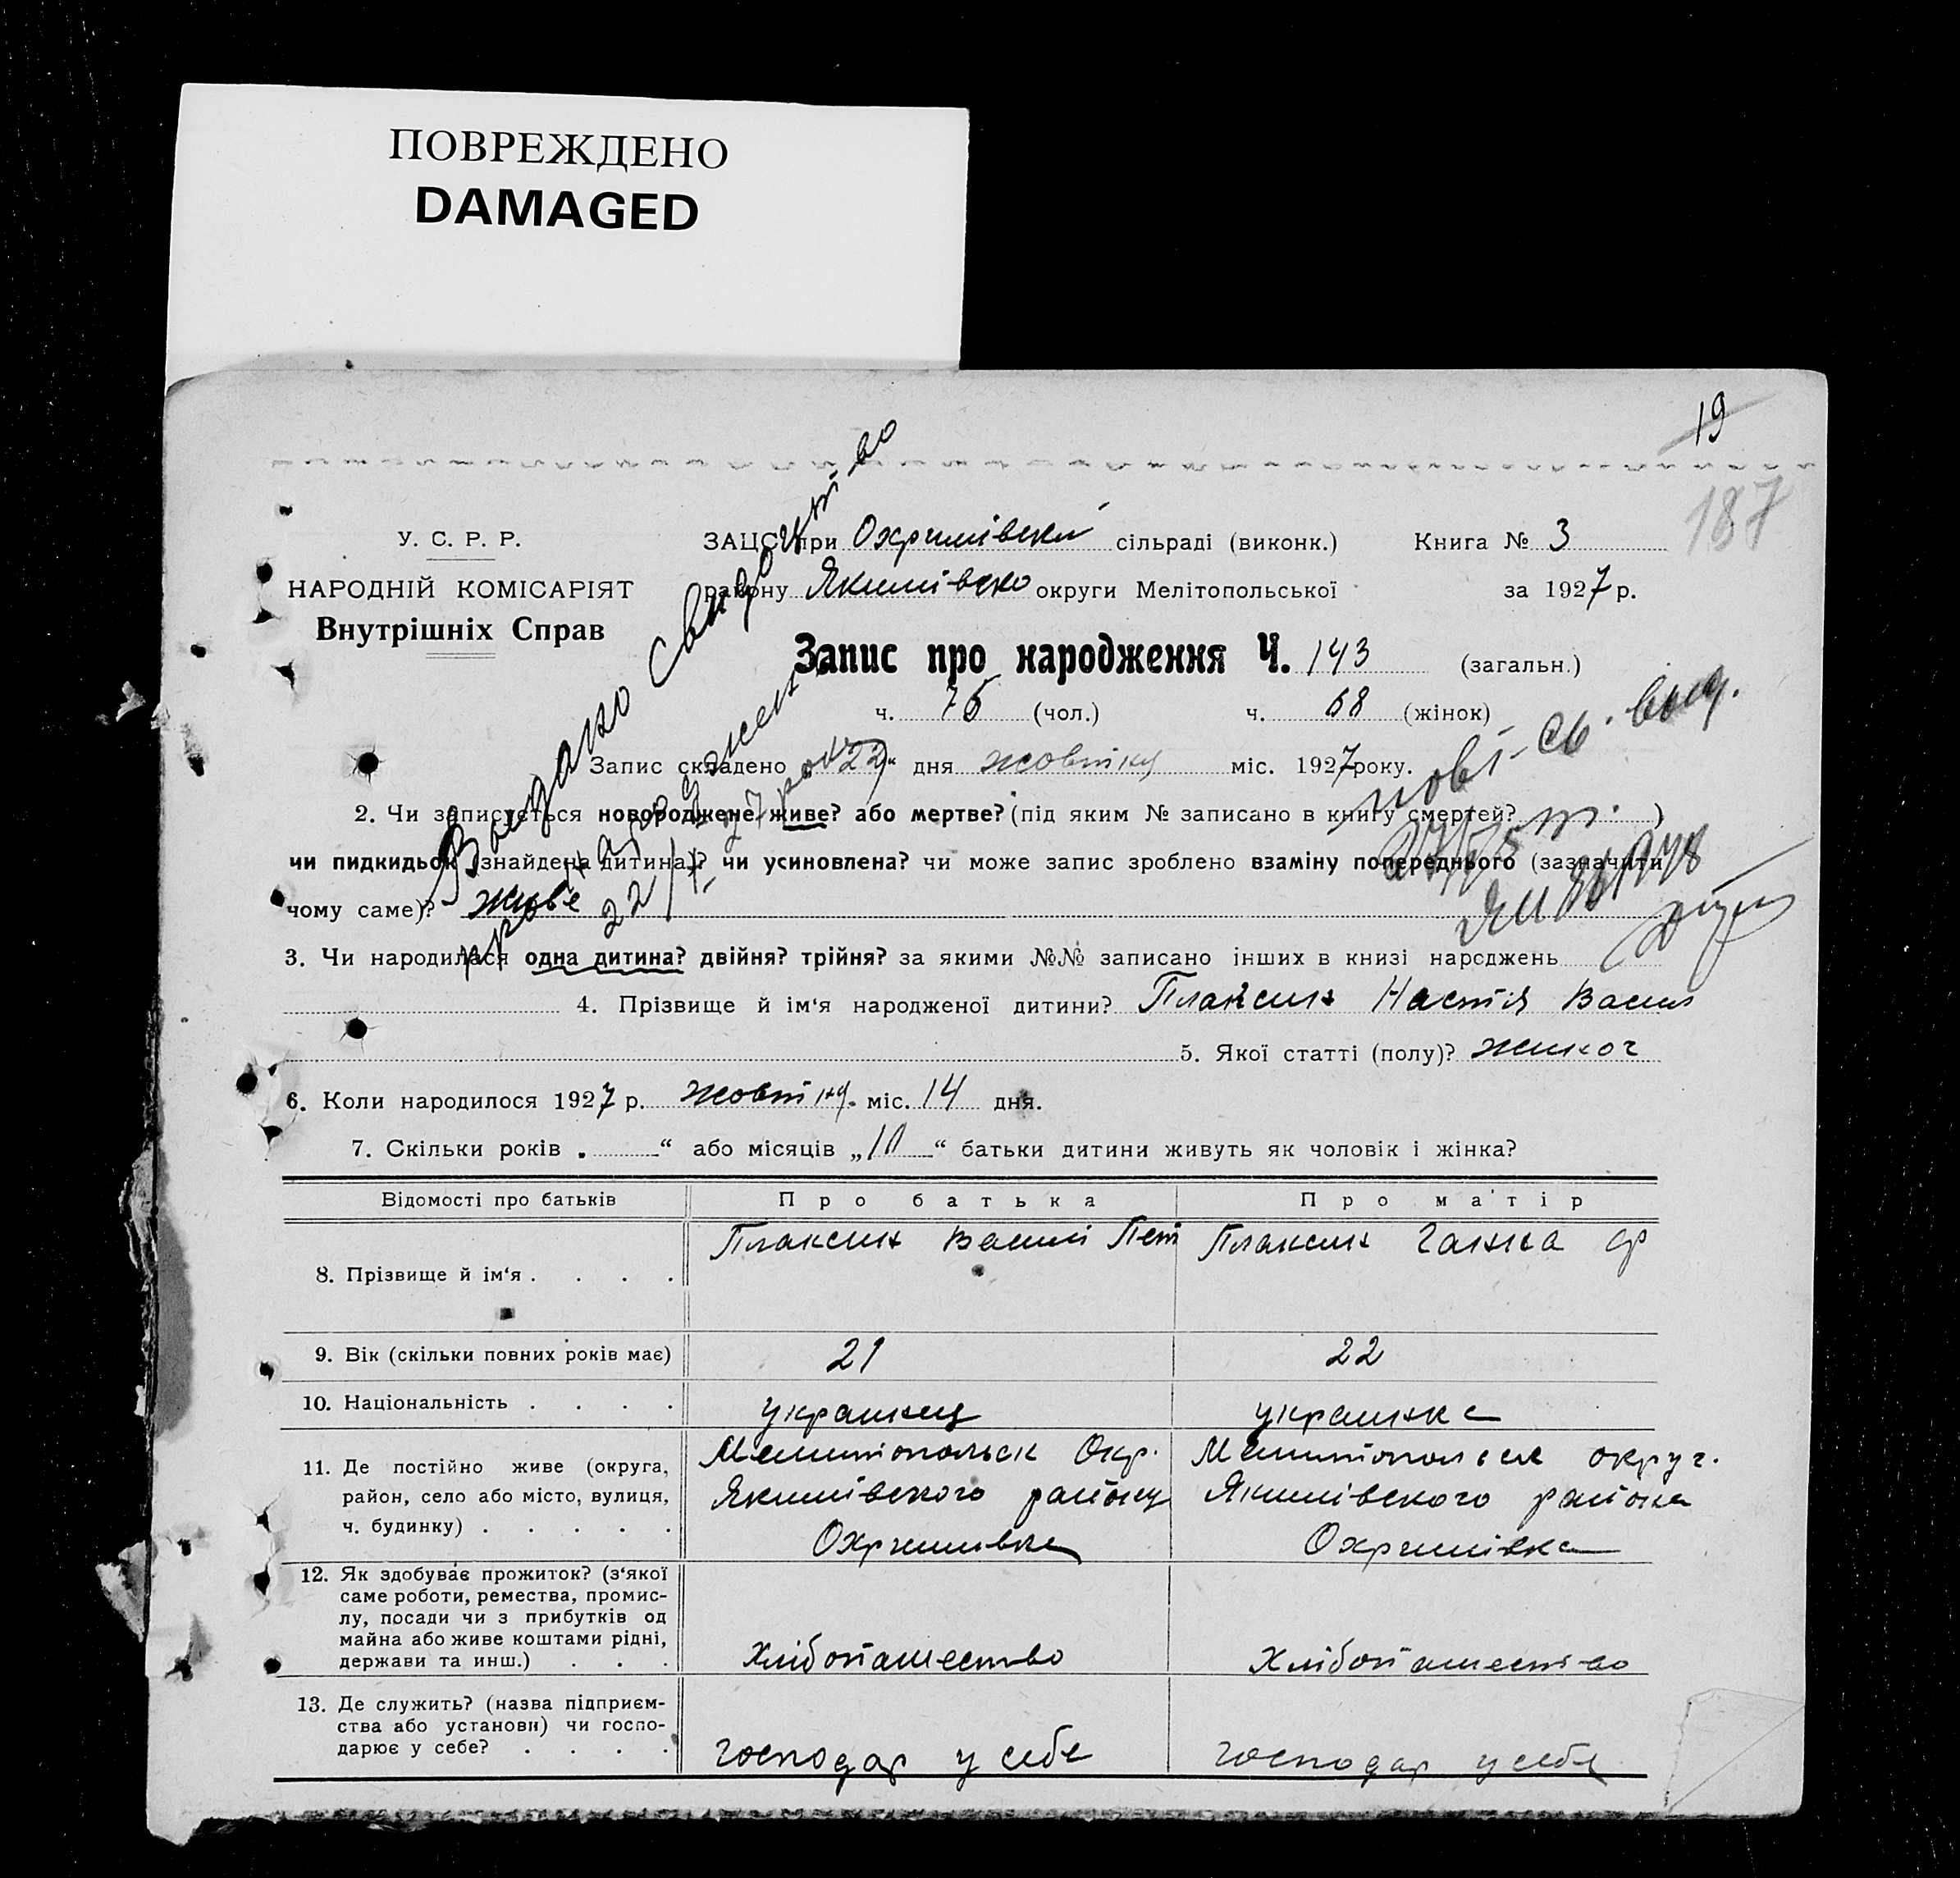 ПОВРЕЖДЕНО
DAMAGED
19
187
У. С. Р. Р.
НАРОДНІЙ КОМІСАРІЯТ
Внутрішніх Справ
ЗАЦС при Охримівскій сільраді (виконк.) Книга № 3
району Якимівско округи Мелітопольської за 1927 р.
Запис про народження Ч. 143 (загальн.)
ч. 75 (чол.) ч. 68 (жінок)
Запис складено „22“ дня жовтня міс. 1927 року.
2. Чи записується новороджене живе? або мертве? (під яким № записано в книгу смертей? )
чи пидкидьок (знайдена дитина)? чи усиновлена? чи може запис зроблено взаміну попереднього (зазначити
чому саме)? живе
Видано свидоцтво
про народжен
22/X 27 року
повт. св. выд.
3. Чи народилася одна дитина? двійня? трійня? за якими №№ записано інших в книзі народжень
4. Прізвище й ім'я народженої дитини? Плаксин Настія Васил
5. Якої статті (полу)? жиноч
6. Коли народилося 1927 р. жовтня міс. 14 дня.
7. Скільки років „ “ або місяців „10“ батьки дитини живуть як чоловік і жінка?
Відомості про батьків Про батька Про матір
8. Прізвище й ім'я . . . . Плаксин Васили Пет Плаксин Ганна Ф
9. Вік (скільки повних років має) 21 22
10. Національність . . . . украинец украинка
11. Де постійно живе (округа, район, село або місто, вулиця, ч. будинку) . . . . .
Мелитопольск Окр. Якимівского району Охримовка
Мелитопольск округ. Якимівского района Охримівка
12. Як здобуває прожиток? (з'якої саме роботи, ремества, промислу, посади чи з прибутків од майна або живе коштами рідні, держави та инш.) . . .
Хлібопашество Хлібопашество
13. Де служить? (назва підприємства або установи) чи господарює у себе? . . . .
господар у себе господар у себе